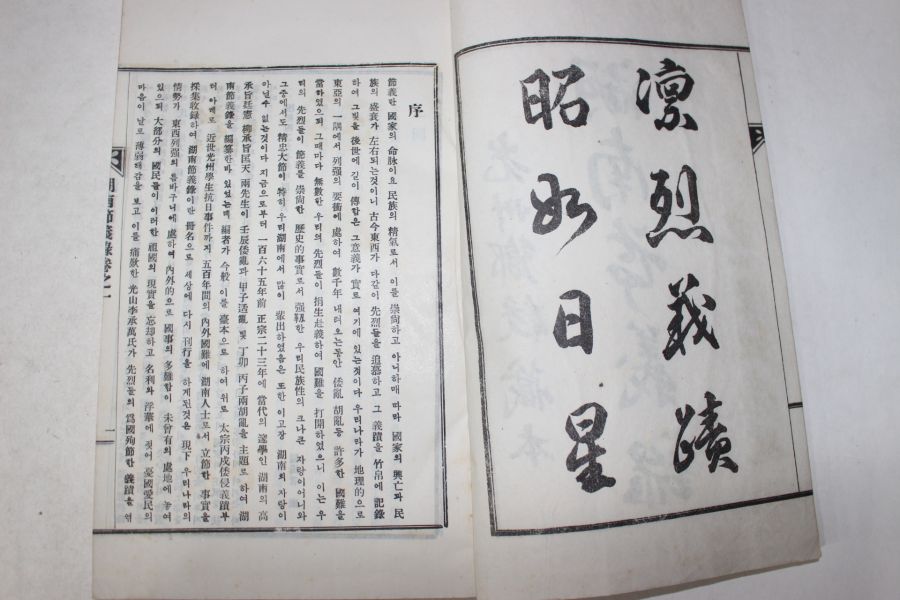 凛烈義蹟
昭如日星
序
節義란 國家의 命脉이요 民族의 精氣로서 이를 崇尙하고 아니하매 따라 國家의 興亡과 民
族의 盛衰가 左右되는것이니 古今東西가 다같이 先烈들을 追慕하고 그 義蹟을 竹帛에 記錄
하여 그빛을 後世에 길이 傳함은 그意義가 實로 여기에 있는것이다 우리나라가 地理的으로
東亞의 一隅에서 列强의 要衝에 處하여 數千年 내려오는동안 倭亂 胡亂等 許多한 國難을
當하였으되 그때마다 無數한 우리의 先烈들이 捐生赴義하여 國難을 打開하였으니 이는 우
리의 先烈들이 節義를 崇尙한 歷史的事實로서 强靱한 우리民族性의 크나큰 자랑이어니와
그중에서도 精忠大節이 特히 우리湖南에서 많이 輩出하였음은 또한 이고장 湖南의 자랑이
아닐수 없는것이다 지금으로부터 一百六十五年前 正宗二十三年에 當代의 達學인 湖南의 高
承旨廷憲 柳承旨匡天 兩先生이 壬辰倭亂과 甲子适亂 및 丁卯 丙子兩胡亂을 主題로하여 湖
南節義錄을 編纂한바 있었는데 編者가 今般 이를 臺本으로 하여 위로 太宗丙戌倭侵義蹟부
터 아래로 近世光州學生抗日事件까지 五百年間의 內外國難에 湖南人士로서 立節한 事實을
採集收錄하여 湖南節義錄이란 冊名으로 세상에 다시 刊行을 하게된것은 現下 우리나라의
情勢가 東西列强의 틈바구니에 處하여 內外的으로 國事의 多難함이 未曾有의 處地에 놓여
있으되 大部分의 國民들이 이러한 祖國의 現實을 忘却하고 名利와 浮華에 젖어 憂國愛民의
마음이 날로 薄弱해감을 보고 이를 痛歎한 光山李承萬氏가 先烈들의 爲國殉節한 義蹟을 엮
湖南節義錄卷之一
一